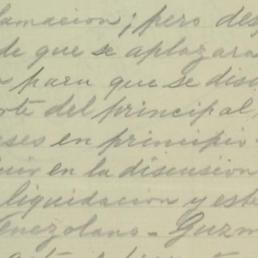 lamacion; pero des
de que se aplazara
para que se disc
rte del principal
eses en principio
uir en la discusion
liquidacion y este
enezolano - Guzm